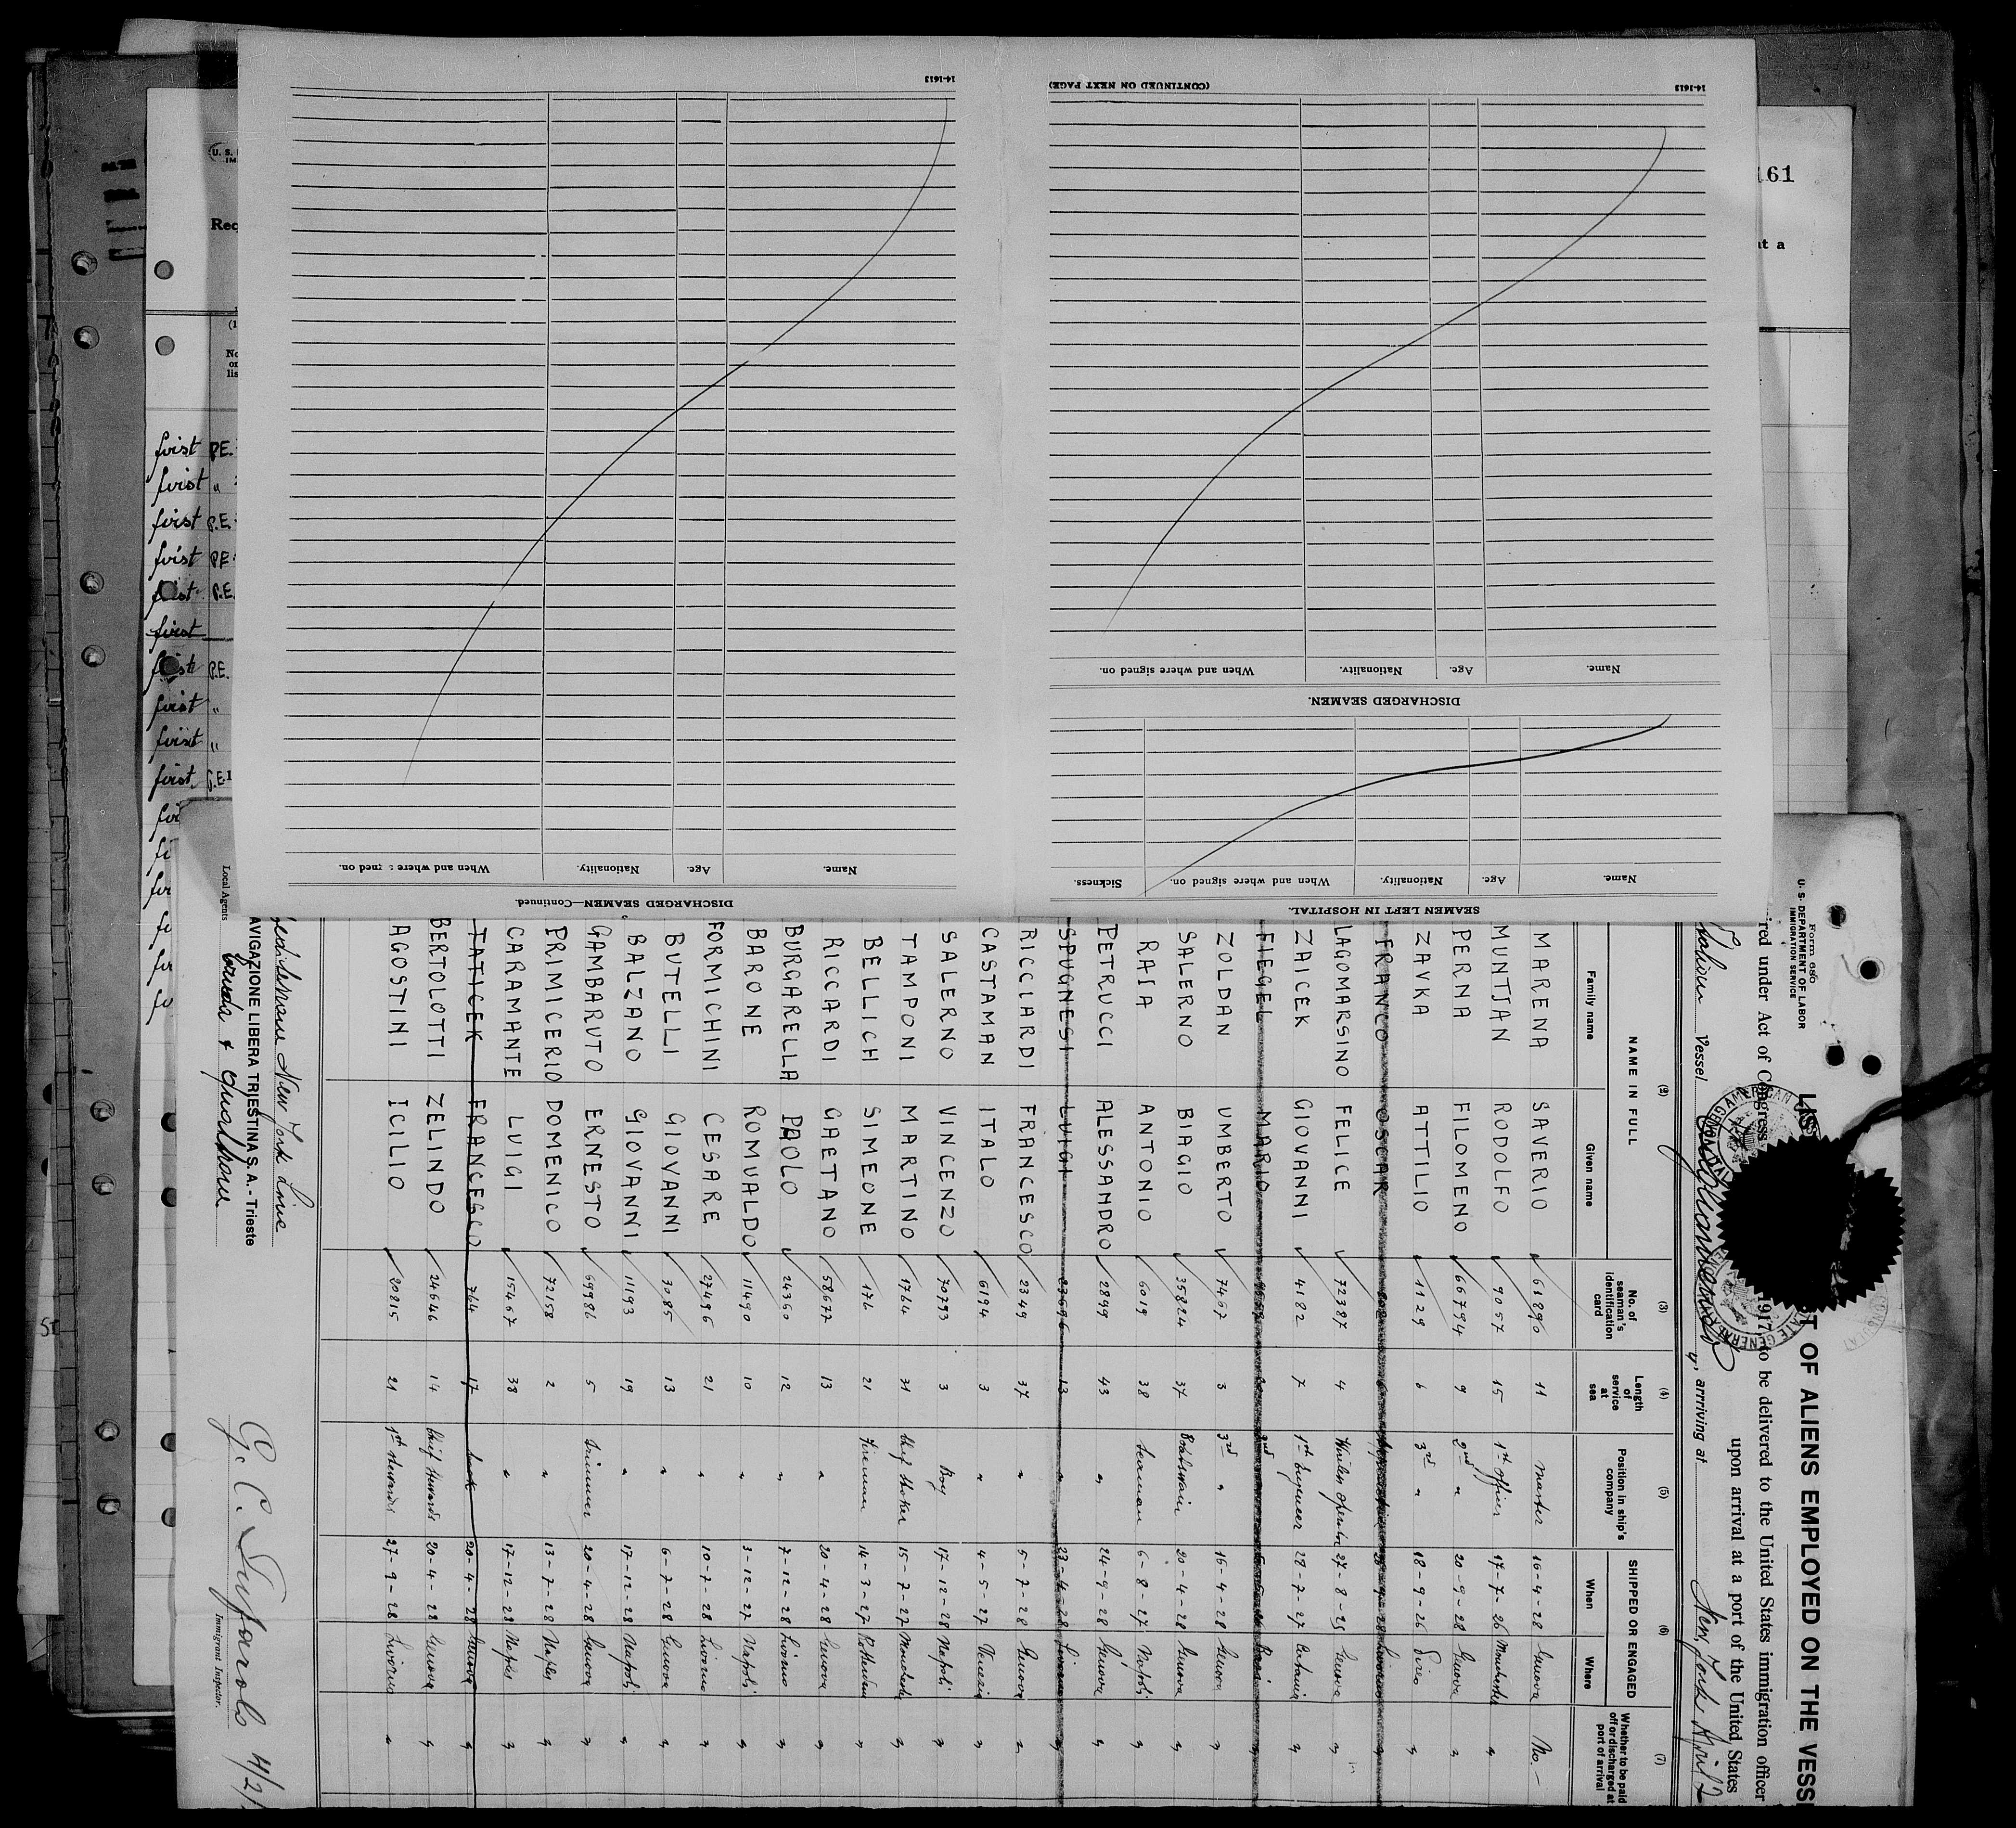 14-1613
(CONTINUED ON NEXT PAGE)
14-1613
Name.
Age.
Nationality.
When and where signed on.
DISCHARGED SEAMEN.
Name.
Age.
Nationality.
When and where signed on.
Sickness.
SEAMEN LEFT IN HOSPITAL.
Name.
Age.
Nationality.
When and where signed on.
DISCHARGED SEAMEN—Continued.
161
at a
U. S.
IM
Req
(1
No
or
lis
first P.E.
first "
first P.E.
first P.E.
first P.E.
first
first P.E.
first "
first "
first P.E.
fir
fi
fir
fe
fir
fo
Form 680
U. S. DEPARTMENT OF LABOR
IMMIGRATION SERVICE
LIST OF ALIENS EMPLOYED ON THE VESS
red under Act of Congress 1917, to be delivered to the United States immigration officer
upon arrival at a port of the United States
Italian Vessel arriving at New York April 2
(2) (3) (4) (5) (6) (7)
NAME IN FULL
Family name Given name
No. of seaman's identification card
Length of service at sea
Position in ship's company
SHIPPED OR ENGAGED
When Where
Whether to be paid off or discharged at port of arrival
MARENA SAVERIO 61890 11 Master 16-4-28 Genova No.-
MUNTJAN RODOLFO 9057 15 1st officer 17-7-26 "
PERNA FILOMENO 66794 9 2nd " 20-9-28 Genova "
ZAVKA ATTILIO 1129 6 3rd " 18-9-26 "
FRANCO OSCAR
LAGOMARSINO FELICE 72387 4 Wireless operator 27-8-25 Genova "
ZAICEK GIOVANNI 4182 7 1st engineer 28-7-27 Catania "
FIEGEL MARIO 2nd
ZOLDAN UMBERTO 7467 3 3rd " 16-4-28 Genova "
SALERNO BIAGIO 35824 37 Boatswain 20-4-28 Genova "
RAIA ANTONIO 6019 38 Seaman 6-8-27 Napoli "
PETRUCCI ALESSANDRO 2899 43 " 24-9-28 Genova "
SPUGNESI LUIGI 13 " Livorno "
RICCIARDI FRANCESCO 2349 37 " 5-7-28 Genova "
CASTAMAN ITALO 6194 3 " 4-5-27 Venezia "
SALERNO VINCENZO 70793 3 Boy 17-12-28 Napoli "
TAMPONI MARTINO 1764 31 Chief Stoker 15-7-27 "
BELLICH SIMEONE 176 21 Fireman 14-3-27 "
RICCARDI GAETANO 58677 13 " 20-4-28 Genova "
BURGARELLA PAOLO 24360 12 " 7-12-28 Livorno "
BARONE ROMUALDO 11490 10 " 3-12-27 Napoli "
FORMICHINI CESARE 27496 21 " 10-7-28 Livorno "
BUTELLI GIOVANNI 3085 13 " 6-7-28 Genova "
BALZANO GIOVANNI 1193 19 " 17-12-28 Napoli "
GAMBARUTO ERNESTO 69986 5 Trimmer 20-4-28 Genova "
PRIMICERIO DOMENICO 72158 2 " 13-7-28 Naples "
CARAMANTE LUIGI 15467 38 " 17-12-28 Naples "
TATICEK FRANCESCO 764 17 Cook 20-4-28 Genova "
BERTOLOTTI ZELINDO 24646 14 Chief Steward 20-4-28 Genova "
AGOSTINI ICILIO 20815 21 1st Steward 27-9-28 Livorno "
New York Line
AVIGAZIONE LIBERA TRIESTINA S. A. - Trieste
Local Agents
G. C. 4/2/
Immigrant Inspector.